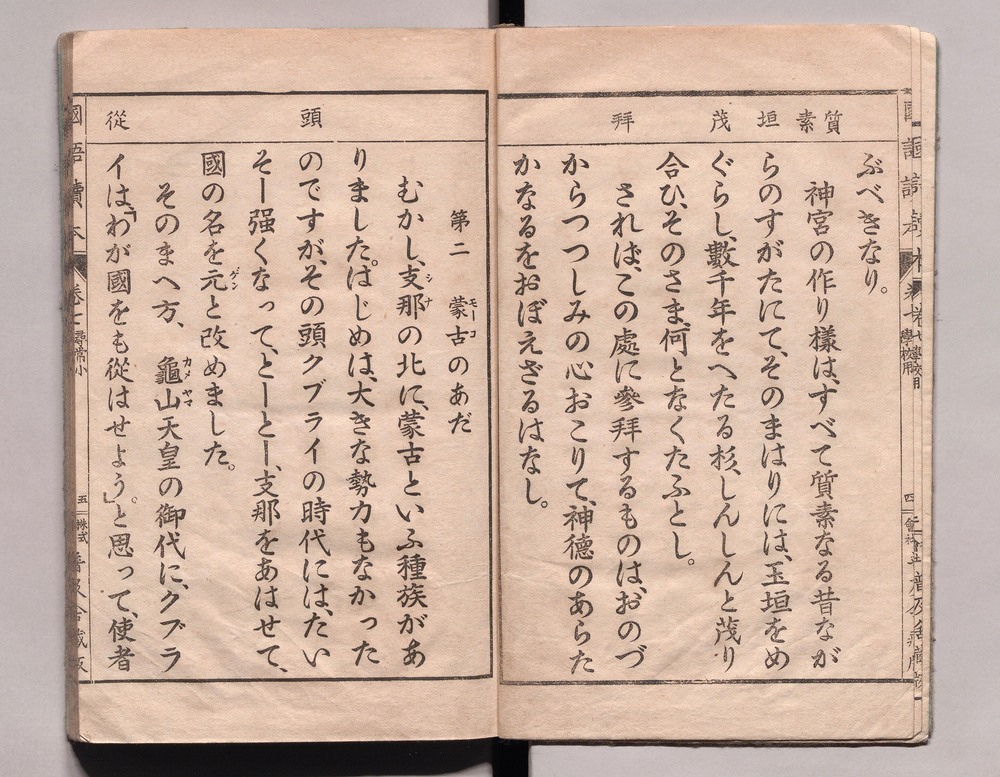 質素
垣
茂
拜
ぶべきなり。
神宮の作り樣は、すべて質素なる昔なが
らのすがたにて、そのまはりには、玉垣をめ
ぐらし、數千年をへたる杉、しんしんと茂り
合ひ、そのさま、何となくたふとし。
されば、この處に參拜するものは、おのづ
からつつしみの心おこりて、神德のあらた
かなるをおぼえざるはなし。
頭
從
第二 蒙古のあだ
モーコ
むかし、支那の北に、蒙古といふ種族があ
シナ
りました。はじめは、大きな勢力もなかった
のですが、その頭クブライの時代には、たい
そー強くなって、とーとー、支那をあはせて、
國の名を元と改めました。
ゲン
そのまへ方、龜山天皇の御代に、クブラ
カメヤマ
イは、「わが國をも從はせよう。」と思って、使者
國語讀本 卷七 尋常小
五 株式